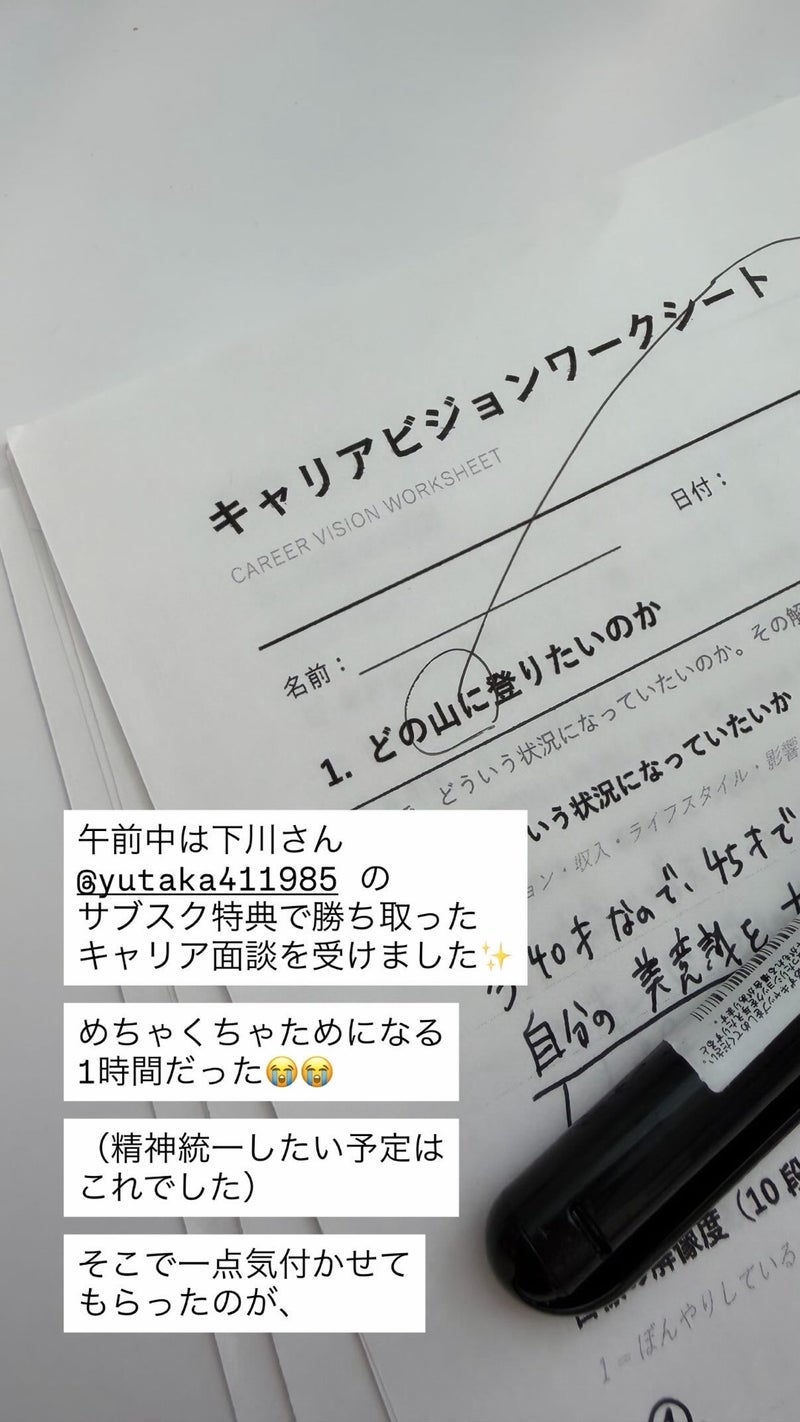 キャリアビジョンワークシート
CAREER VISION WORKSHEET
日付：
名前：
1. どの山に登りたいのか
どういう状況になっていたいのか。その解
いう状況になっていたいか
ン・収入・ライフスタイル・影響
40才なので、45才で
自分の 美意識を
解像度（10段
1＝ぼんやりしている
午前中は下川さん
@yutaka411985 の
サブスク特典で勝ち取った
キャリア面談を受けました✨
めちゃくちゃためになる
1時間だった😭😭
（精神統一したい予定は
これでした）
そこで一点気付かせて
もらったのが、